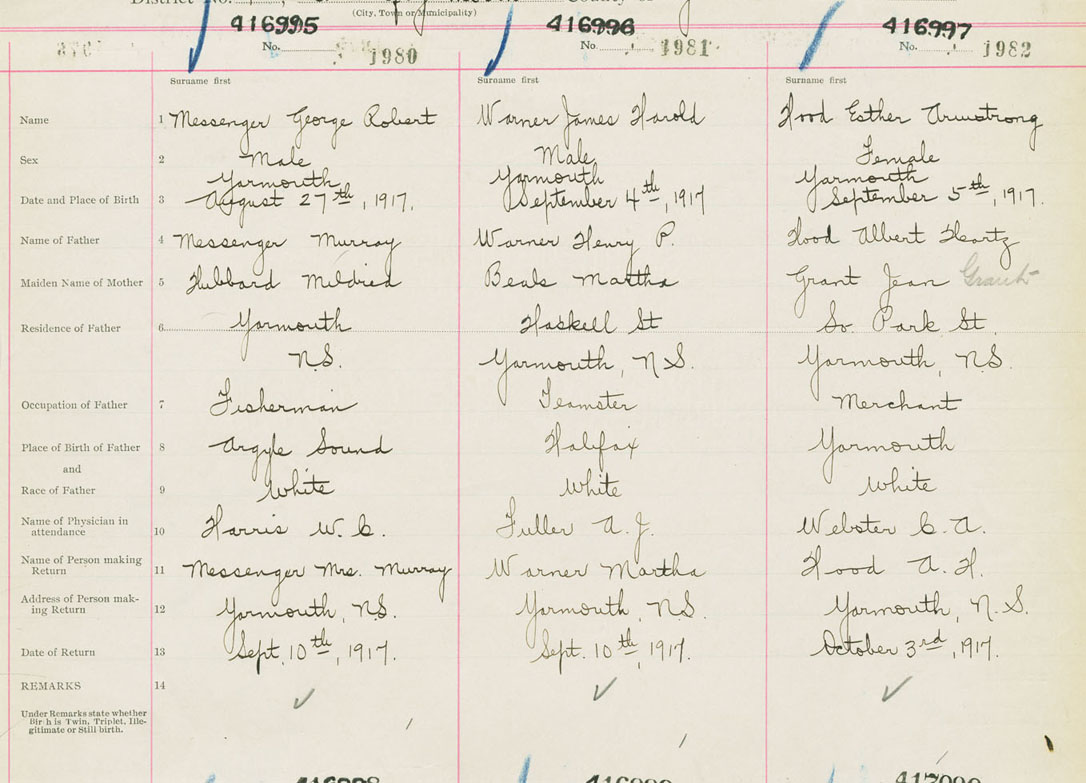 District No.
County of
(City, Town or Municipality)
416995 416996 416997
No. 1980 No. 1981 No. 1982
Surname first Surname first Surname first
Name 1 Messenger George Robert Warner James Harold Hood Esther Armstrong
Sex 2 Male Male Female
Yarmouth Yarmouth Yarmouth
Date and Place of Birth 3 August 27th, 1917. September 4th, 1917 September 5th, 1917.
Name of Father 4 Messenger Murray Warner Henry P. Hood Albert Heartz
Maiden Name of Mother 5 Hubbard Mildred Beals Martha Grant Jean Grant
Residence of Father 6 Yarmouth Haskell St So. Park St.
N.S. Yarmouth, N.S. Yarmouth, NS.
Occupation of Father 7 Fisherman Teamster Merchant
Place of Birth of Father 8 Argyle Sound Halifax Yarmouth
and
Race of Father 9 White White White
Name of Physician in
attendance 10 Harris W. C. Fuller A. J. Webster C. A.
Name of Person making
Return 11 Messenger Mrs. Murray Warner Martha Hood A. H.
Address of Person mak-
ing Return 12 Yarmouth, N.S. Yarmouth, N.S. Yarmouth, N.S.
Date of Return 13 Sept. 10th, 1917. Sept. 10th, 1917. October 3rd, 1917.
REMARKS 14 ✓ ✓ ✓
Under Remarks state whether
Birth is Twin, Triplet, Ille-
gitimate or Still birth.